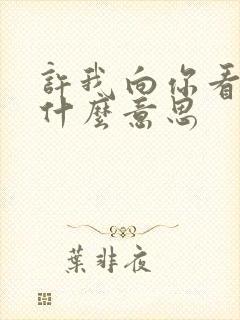 許我向你看
什麼意思
葉非夜